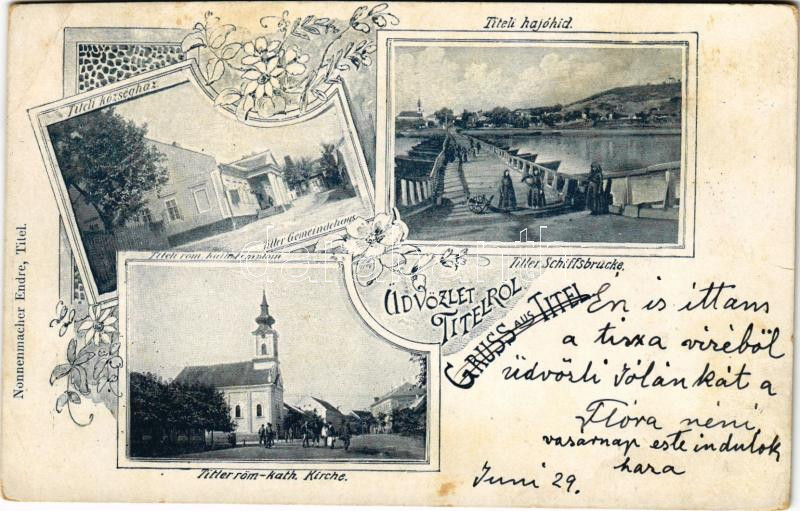 Titeli községház.
Titeli hajóhid.
Titler Gemeindehaus.
Titeli róm. kath. templom
Titler Schiffsbrücke.
ÜDVÖZLET
TITELRŐL
GRUSS AUS TITEL
Titler röm-kath. Kirche.
Nonnenmacher Endre, Titel.
Én is ittam
a tisza vizéből
üdvözli Jólánkát a
Flóra néni
vasarnap este indulok
hara
Juni 29.